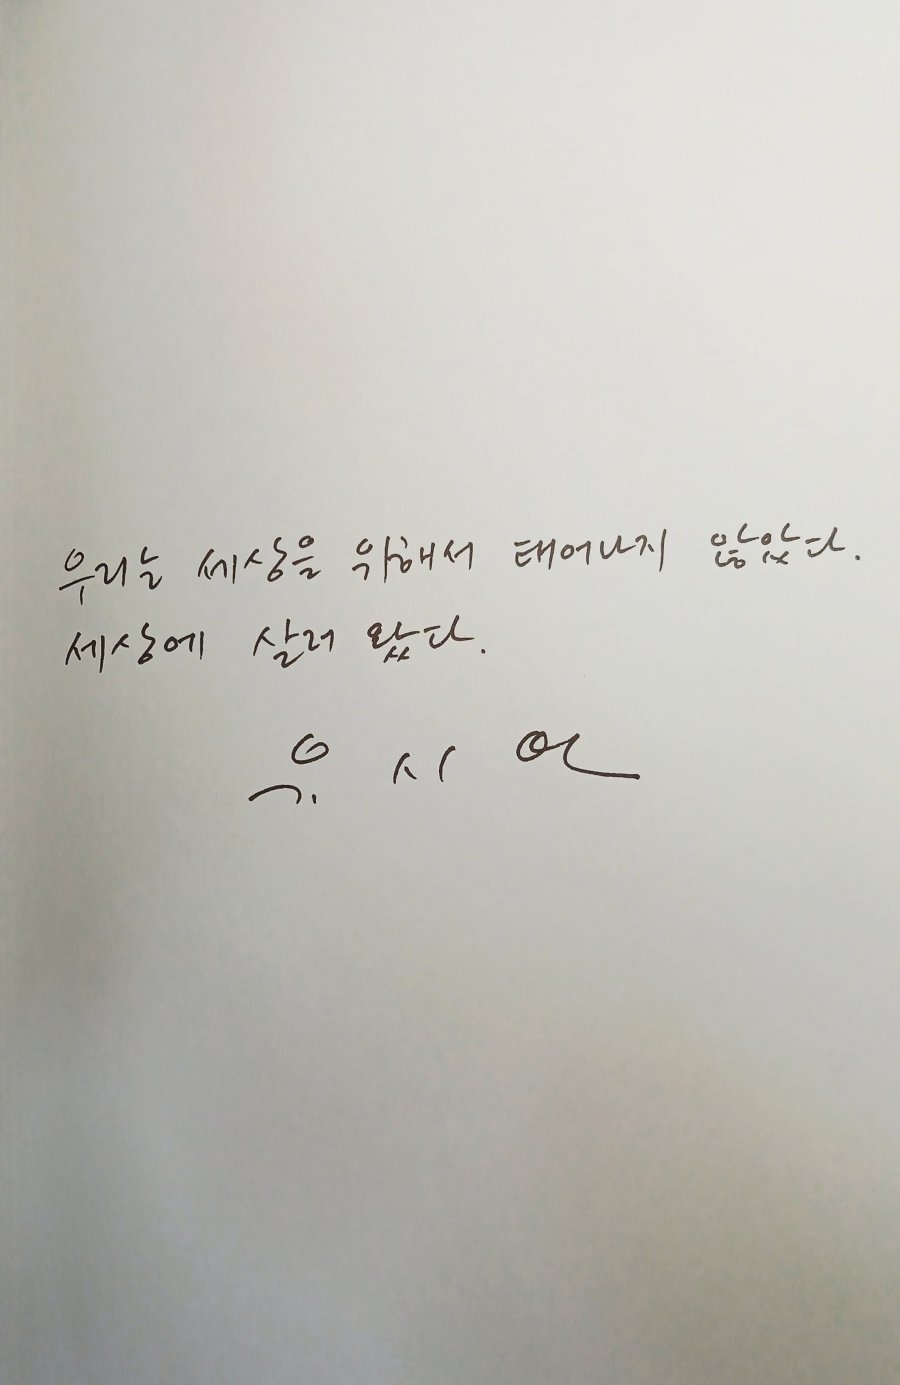 우리는 세상을 위해서 태어나지 않았다.
세상에 살러 왔다.
유시연